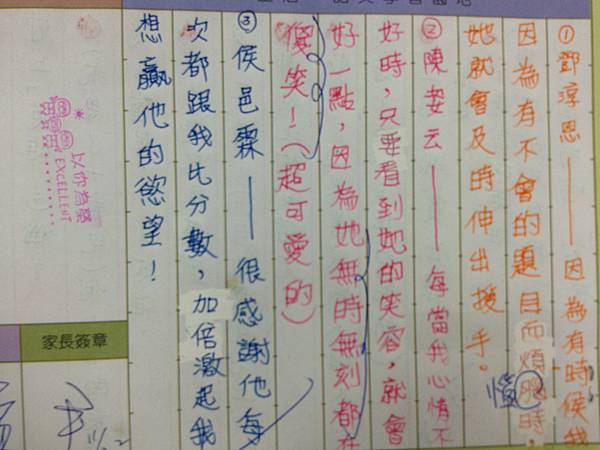 ①鄧淳恩——因為有時候我
因為有不會的題目而煩腦時，
她就會及時伸出援手。
惱
②陳姿云——每當我心情不
好時，只要看到她的笑容，就會
好一點，因為她無時無刻都在
傻笑！（超可愛的）
③侯邑霖——很感謝他每
次都跟我比分數，加倍激起我
想贏他的慾望！
以你為榮
EXCELLENT
家長簽章
11/12